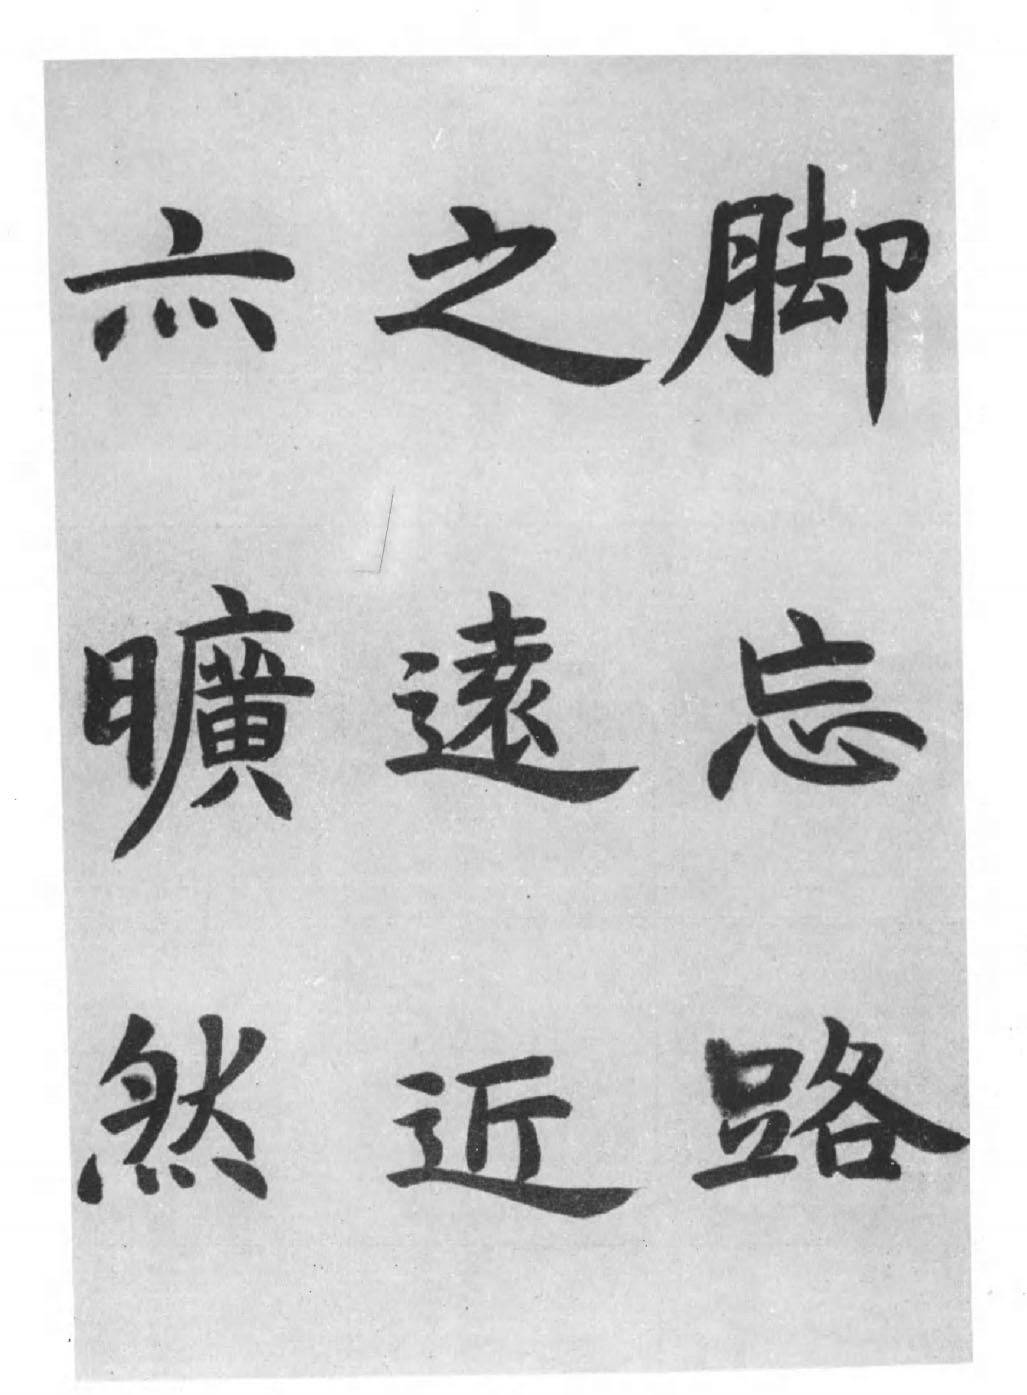 脚忘路
之遠近
亦曠然